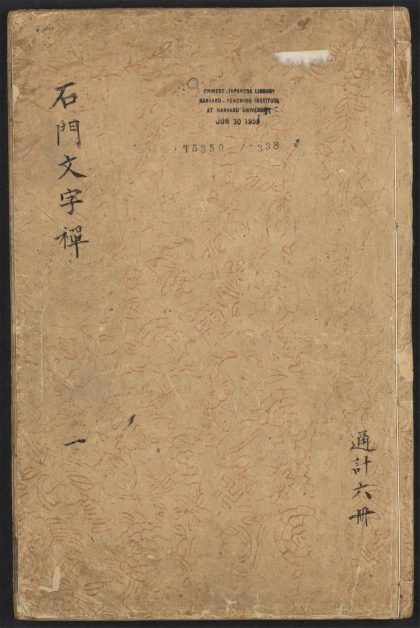 石門文字禪
一
CHINESE-JAPANESE LIBRARY
HARVARD-YENCHING INSTITUTE
AT HARVARD UNIVERSITY
JUN 30 1959
T5350 /5338
通計六冊